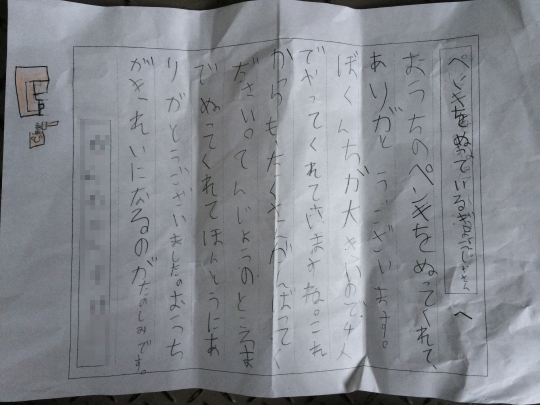 ペンキをぬっている へ
おうちのペンキをぬってくれて、
ありがとうございます。
ぼくんちが大きいので、4人
でやってくれていますね。これ
からも、たくさんがんばってく
ださい。てんじょうのところま
でぬってくれてほんとうにあ
りがとうございました。おうち
がきれいになるのがたのしみです。